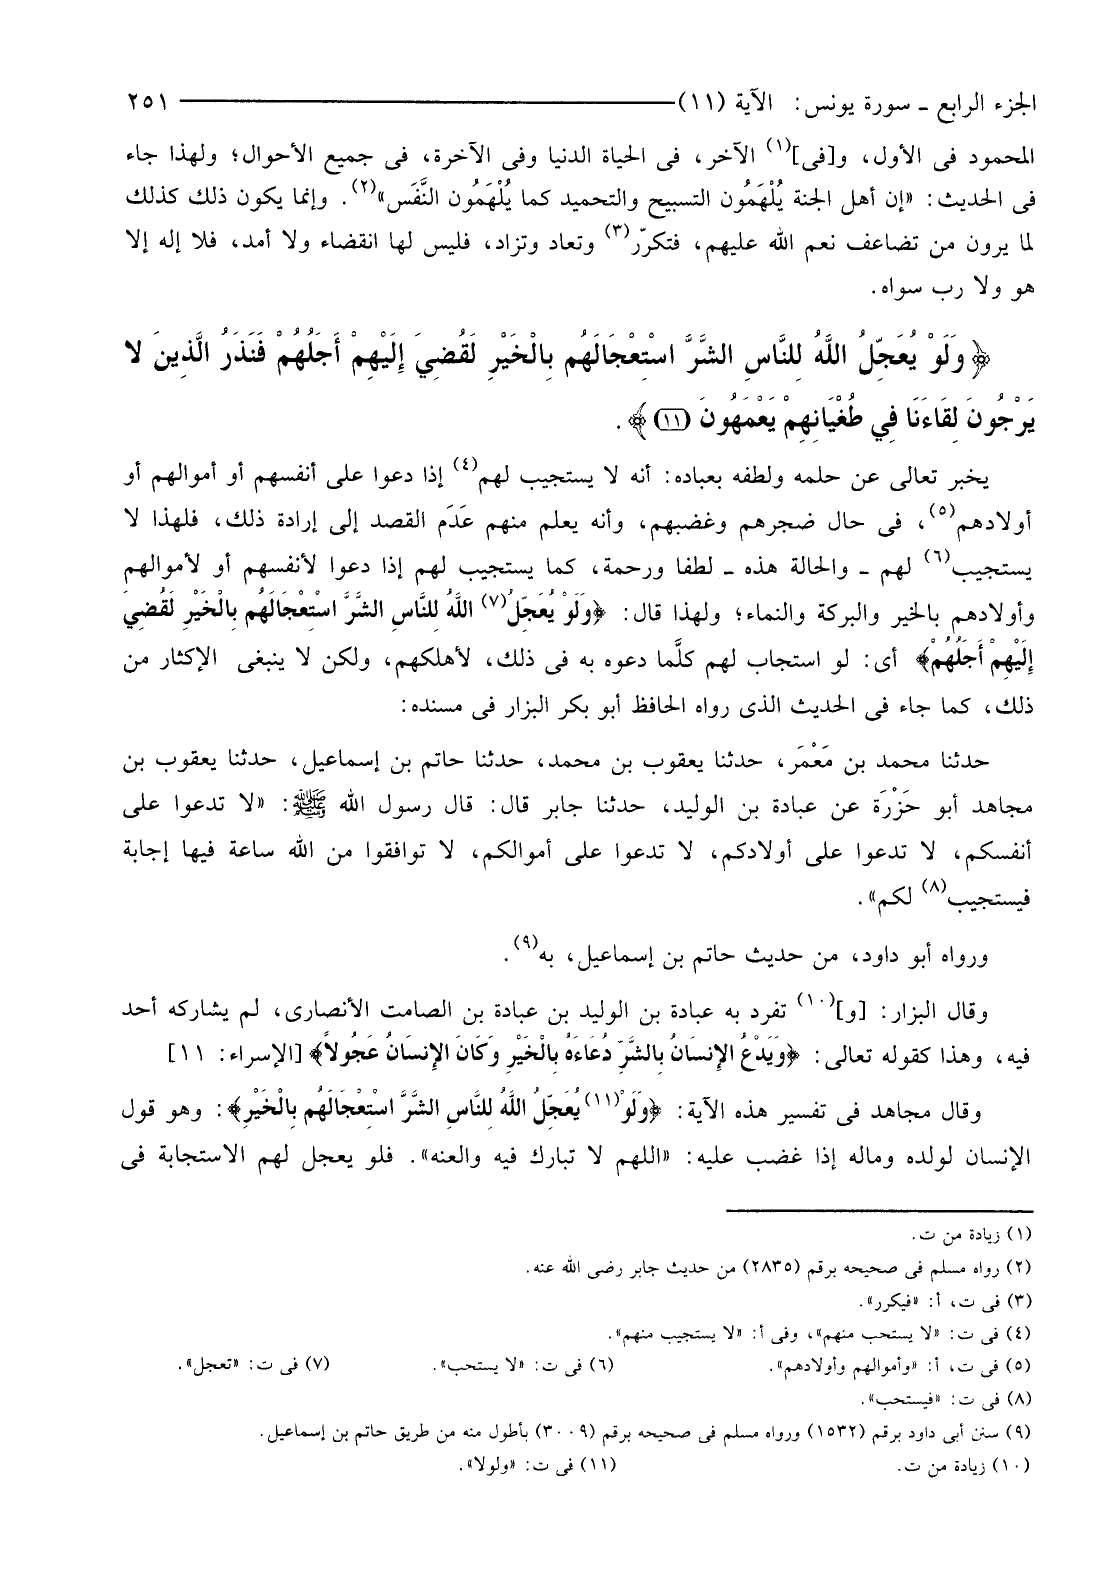 الجزء الرابع ـ سورة يونس: الآية (١١) ٢٥١
المحمود فى الأول، و[فى](١) الآخر، فى الحياة الدنيا وفى الآخرة، فى جميع الأحوال؛ ولهذا جاء
فى الحديث: «إن أهل الجنة يُلْهَمُون التسبيح والتحميد كما يُلْهَمُون النَّفَس»(٢). وإنما يكون ذلك كذلك
لما يرون من تضاعف نعم الله عليهم، فتكرّر(٣) وتعاد وتزاد، فليس لها انقضاء ولا أمد، فلا إله إلا
هو ولا رب سواه.
﴿وَلَوْ يُعَجِّلُ اللَّهُ لِلنَّاسِ الشَّرَّ اسْتِعْجَالَهُم بِالْخَيْرِ لَقُضِيَ إِلَيْهِمْ أَجَلُهُمْ فَنَذَرُ الَّذِينَ لا
يَرْجُونَ لِقَاءَنَا فِي طُغْيَانِهِمْ يَعْمَهُونَ (١١)﴾.
يخبر تعالى عن حلمه ولطفه بعباده: أنه لا يستجيب لهم(٤) إذا دعوا على أنفسهم أو أموالهم أو
أولادهم(٥)، فى حال ضجرهم وغضبهم، وأنه يعلم منهم عَدَم القصد إلى إرادة ذلك، فلهذا لا
يستجيب(٦) لهم ـ والحالة هذه ـ لطفا ورحمة، كما يستجيب لهم إذا دعوا لأنفسهم أو لأموالهم
وأولادهم بالخير والبركة والنماء؛ ولهذا قال: ﴿وَلَوْ يُعَجِّلُ(٧) اللَّهُ لِلنَّاسِ الشَّرَّ اسْتِعْجَالَهُم بِالْخَيْرِ لَقُضِيَ
إِلَيْهِمْ أَجَلُهُمْ﴾ أى: لو استجاب لهم كلَّما دعوه به فى ذلك، لأهلكهم، ولكن لا ينبغى الإكثار من
ذلك، كما جاء فى الحديث الذى رواه الحافظ أبو بكر البزار فى مسنده:
حدثنا محمد بن مَعْمَر، حدثنا يعقوب بن محمد، حدثنا حاتم بن إسماعيل، حدثنا يعقوب بن
مجاهد أبو حَزْرَة عن عبادة بن الوليد، حدثنا جابر قال: قال رسول الله ﷺ: «لا تدعوا على
أنفسكم، لا تدعوا على أولادكم، لا تدعوا على أموالكم، لا توافقوا من الله ساعة فيها إجابة
فيستجيب(٨) لكم».
ورواه أبو داود، من حديث حاتم بن إسماعيل، به(٩).
وقال البزار: [و](١٠) تفرد به عبادة بن الوليد بن عبادة بن الصامت الأنصارى، لم يشاركه أحد
فيه، وهذا كقوله تعالى: ﴿وَيَدْعُ الإِنسَانُ بِالشَّرِّ دُعَاءَهُ بِالْخَيْرِ وَكَانَ الإِنسَانُ عَجُولاً﴾ [الإسراء: ١١]
وقال مجاهد فى تفسير هذه الآية: ﴿وَلَوْ(١١) يُعَجِّلُ اللَّهُ لِلنَّاسِ الشَّرَّ اسْتِعْجَالَهُم بِالْخَيْرِ﴾: وهو قول
الإنسان لولده وماله إذا غضب عليه: «اللهم لا تبارك فيه والعنه». فلو يعجل لهم الاستجابة فى
(١) زيادة من ت.
(٢) رواه مسلم فى صحيحه برقم (٢٨٣٥) من حديث جابر رضى الله عنه.
(٣) فى ت، أ: «فيكرر».
(٤) فى ت: «لا يستحب منهم»، وفى أ: «لا يستجيب منهم».
(٥) فى ت، أ: «وأموالهم وأولادهم». (٦) فى ت: «لا يستحب». (٧) فى ت: «تعجل».
(٨) فى ت: «فيستحب».
(٩) سنن أبى داود برقم (١٥٣٢) ورواه مسلم فى صحيحه برقم (٣٠٠٩) بأطول منه من طريق حاتم بن إسماعيل.
(١٠) زيادة من ت. (١١) فى ت: «ولولا».